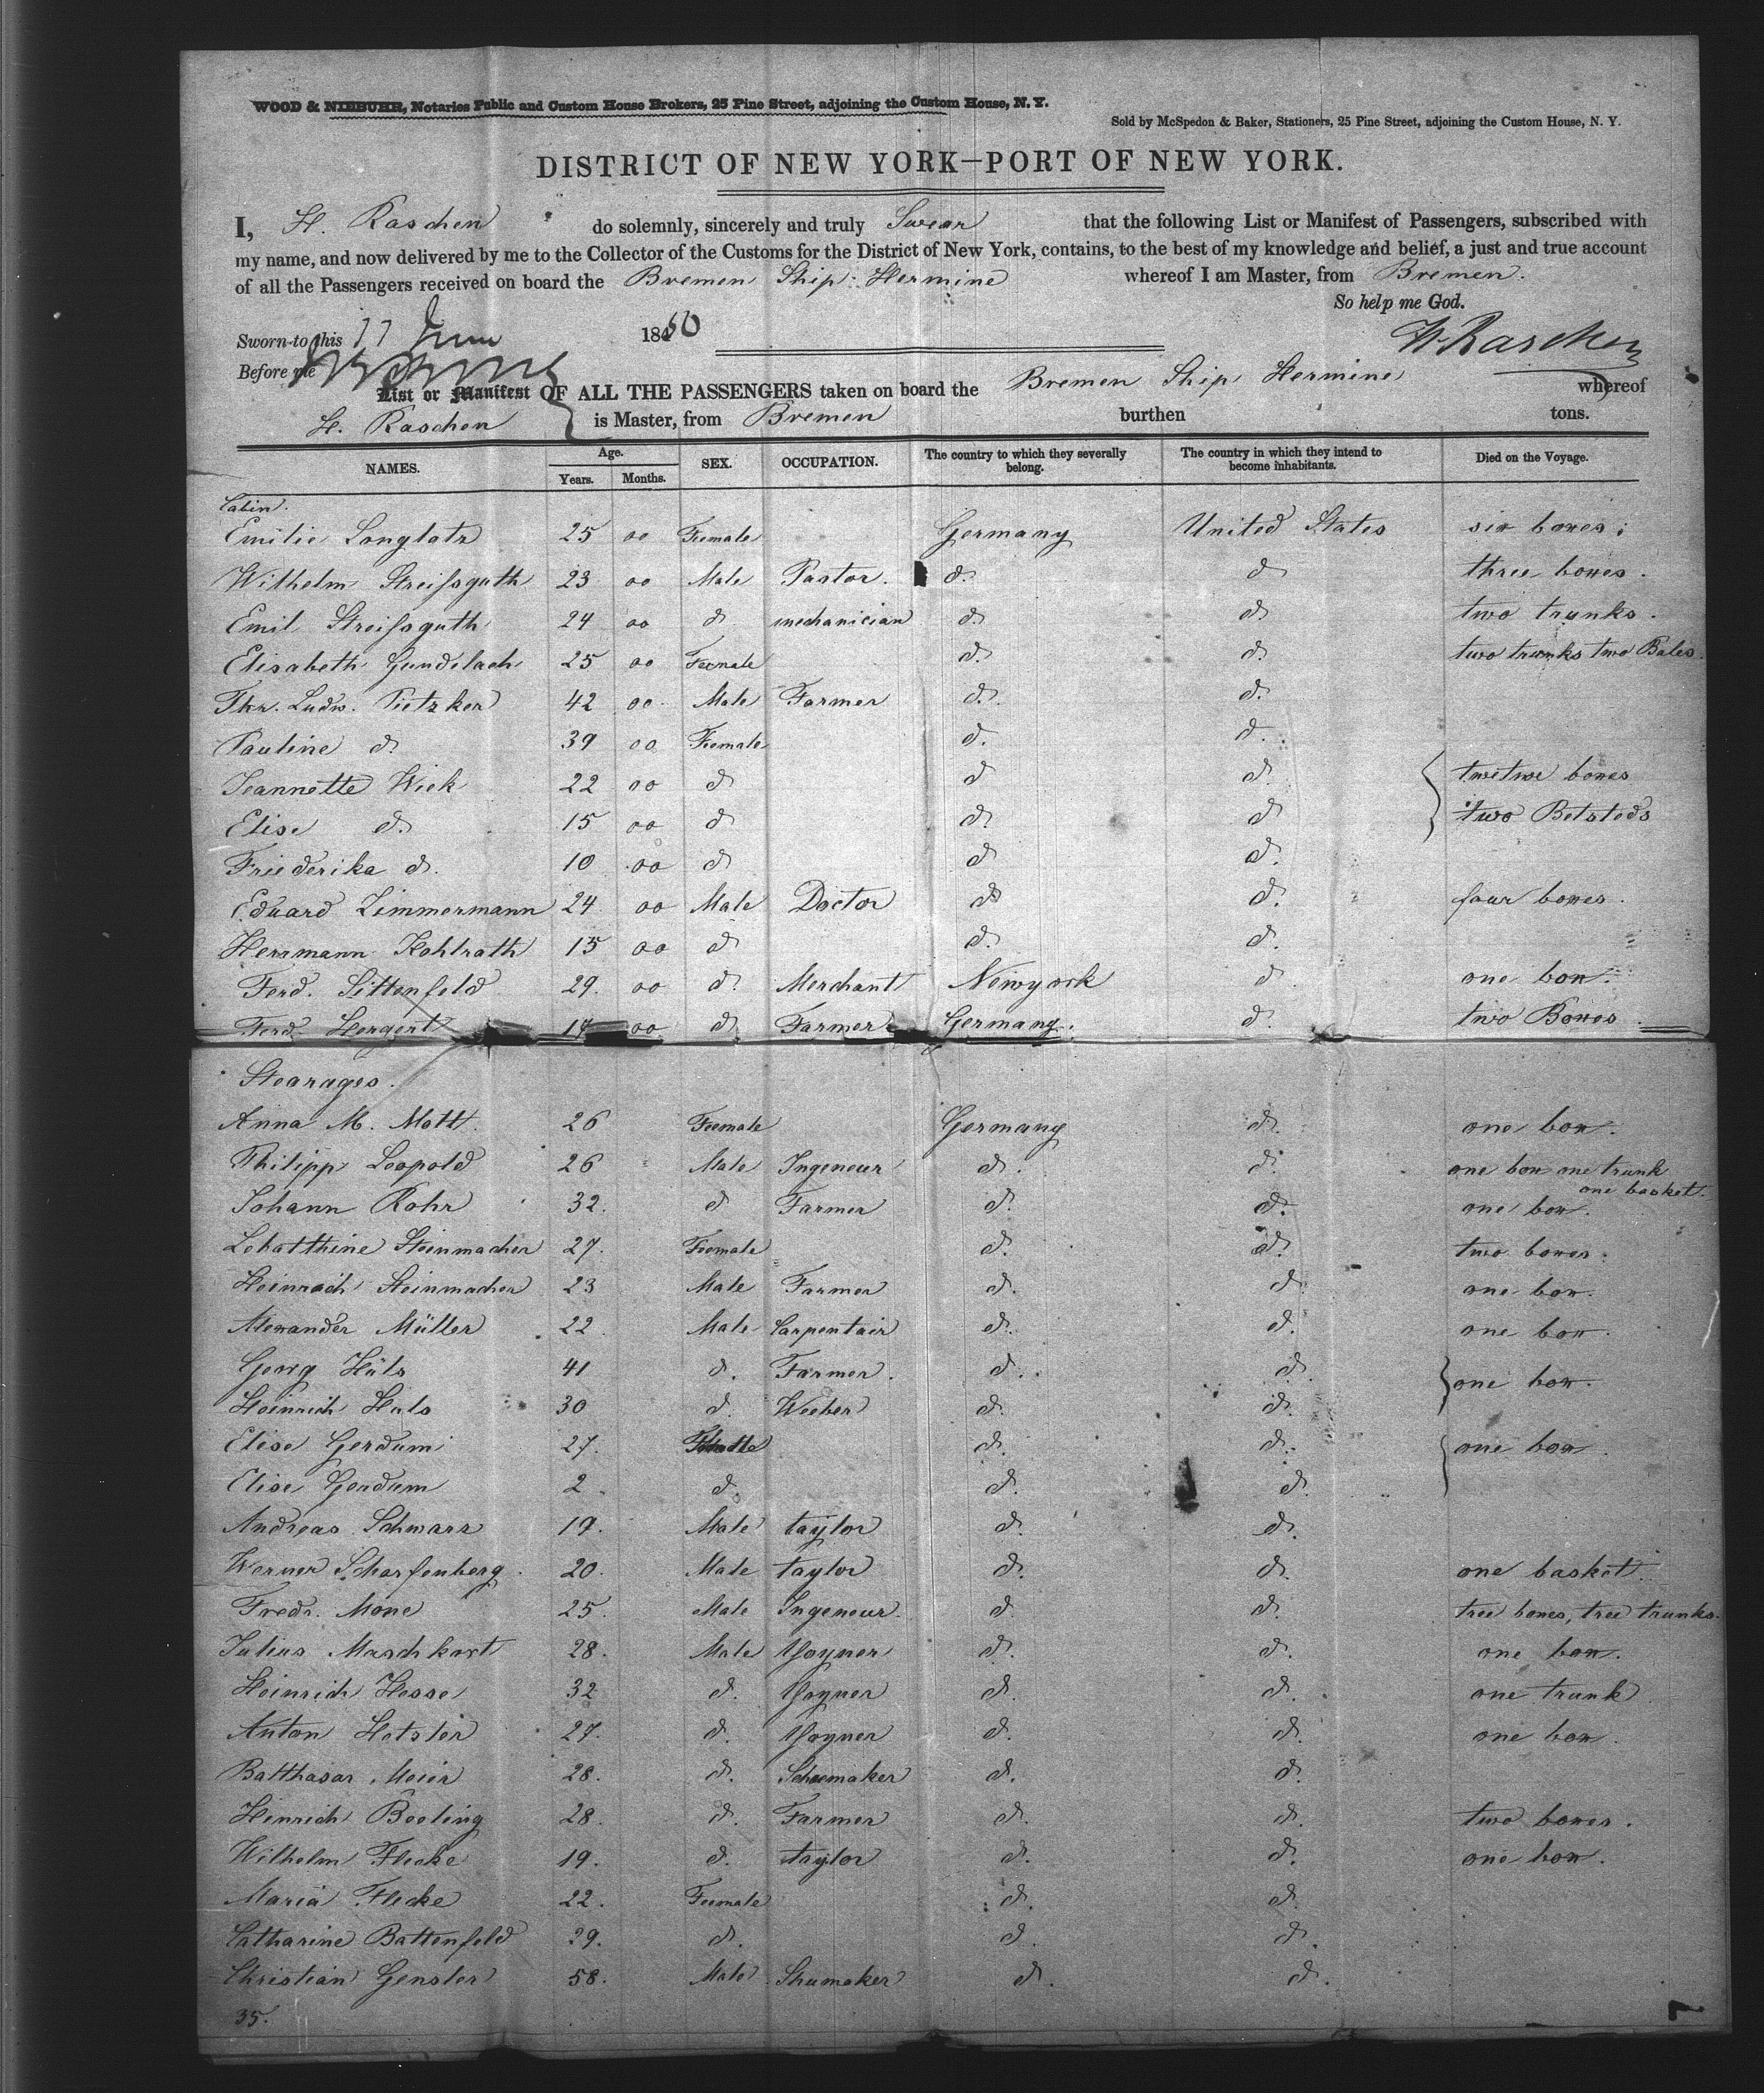 WOOD & NIEBUHR, Notaries Public and Custom House Brokers, 25 Pine Street, adjoining the Custom House, N. Y.
Sold by McSpedon & Baker, Stationers, 25 Pine Street, adjoining the Custom House, N. Y.
DISTRICT OF NEW YORK—PORT OF NEW YORK.
I, H. Raschen do solemnly, sincerely and truly Swear that the following List or Manifest of Passengers, subscribed with
my name, and now delivered by me to the Collector of the Customs for the District of New York, contains, to the best of my knowledge and belief, a just and true account
of all the Passengers received on board the Bremen Ship Hermine whereof I am Master, from Bremen.
So help me God.
Sworn to this 17 June 1850
H. Raschen
Before me
List or Manifest OF ALL THE PASSENGERS taken on board the Bremen Ship Hermine whereof
H. Raschen is Master, from Bremen burthen tons.
NAMES. Age. Years. Months. SEX. OCCUPATION. The country to which they severally belong. The country in which they intend to become inhabitants. Died on the Voyage.
Cabin.
Emilie Langlotz 25 oo Feemale Germany United States six boxes
Wilhelm Streifsguth 23 oo Male Pastor. d. d three boxes.
Emil Streifsguth 24 oo d mechanician d. d two trunks.
Elisabeth Gundelach 25 oo Feemale d. d. two trunks two Bales.
Thr. Ludw. Tietzker 42 oo Male Farmer d. d.
Pauline d. 39 oo Feemale d. d.
Jeannette Wiek 22 oo d d d. boxes
Elise d. 15 oo d d. d two Betsteds
Friederika d. 10 oo d d d.
Eduard Zimmermann 24 oo Male Doctor d d. four boxes.
Herrmann Kohlrath 15 oo d d. d.
Ferd. Sittenfeld 29. oo d. Merchant Newyork d one box.
Ferd. Hergert 17 oo d Farmer Germany. d. two Boxes
Stearages.
Anna M. Mott. 26 Feemale Germany d. one box.
Philipp Leopold 26 Male Ingeneur d. d. one box one trunk
one basket.
Johann Rohr 32. d Farmer d. d. one box.
Steinmacher 27. Feemale d. d. two boxes.
Heinrich Steinmacher 23 Male Farmer d. d. one box.
Alexander Müller 22 Male Carpentair d. d. one box.
Georg Hüls 41 d. Farmer. d. d. one box.
Heinrich Huls 30 d. Weeber d. d.
Elise Gerdum 27. d. d. one box
Elise Gerdum 2 d. d. d.
Andreas Schwarz 19. Male taylor d. d.
Werner Scharfenberg. 20. Male taylor d. d. one basket.
Fredr. Mone 25. Male Ingeneur. d. d. tree boxes, tree trunks.
Julius Maschkort 28. Male Yoyner d. d. one box.
Heinrich Hesse 32 d. Yoyner d. d. one trunk
Anton Hetsler 27. d. Yoyner d. d. one box.
Balthasar Meier 28. d. Schoemaker d. d.
Hinrich Beeling 28. d. Farmer d. d. two boxes.
Wilhelm Flecke 19. d. taylor d. d. one box.
Maria Flecke 22. Feemale d. d.
Catharine Battenfeld 29. d. d. d.
Christian Gensler 58. Male Shumaker d. d.
35.